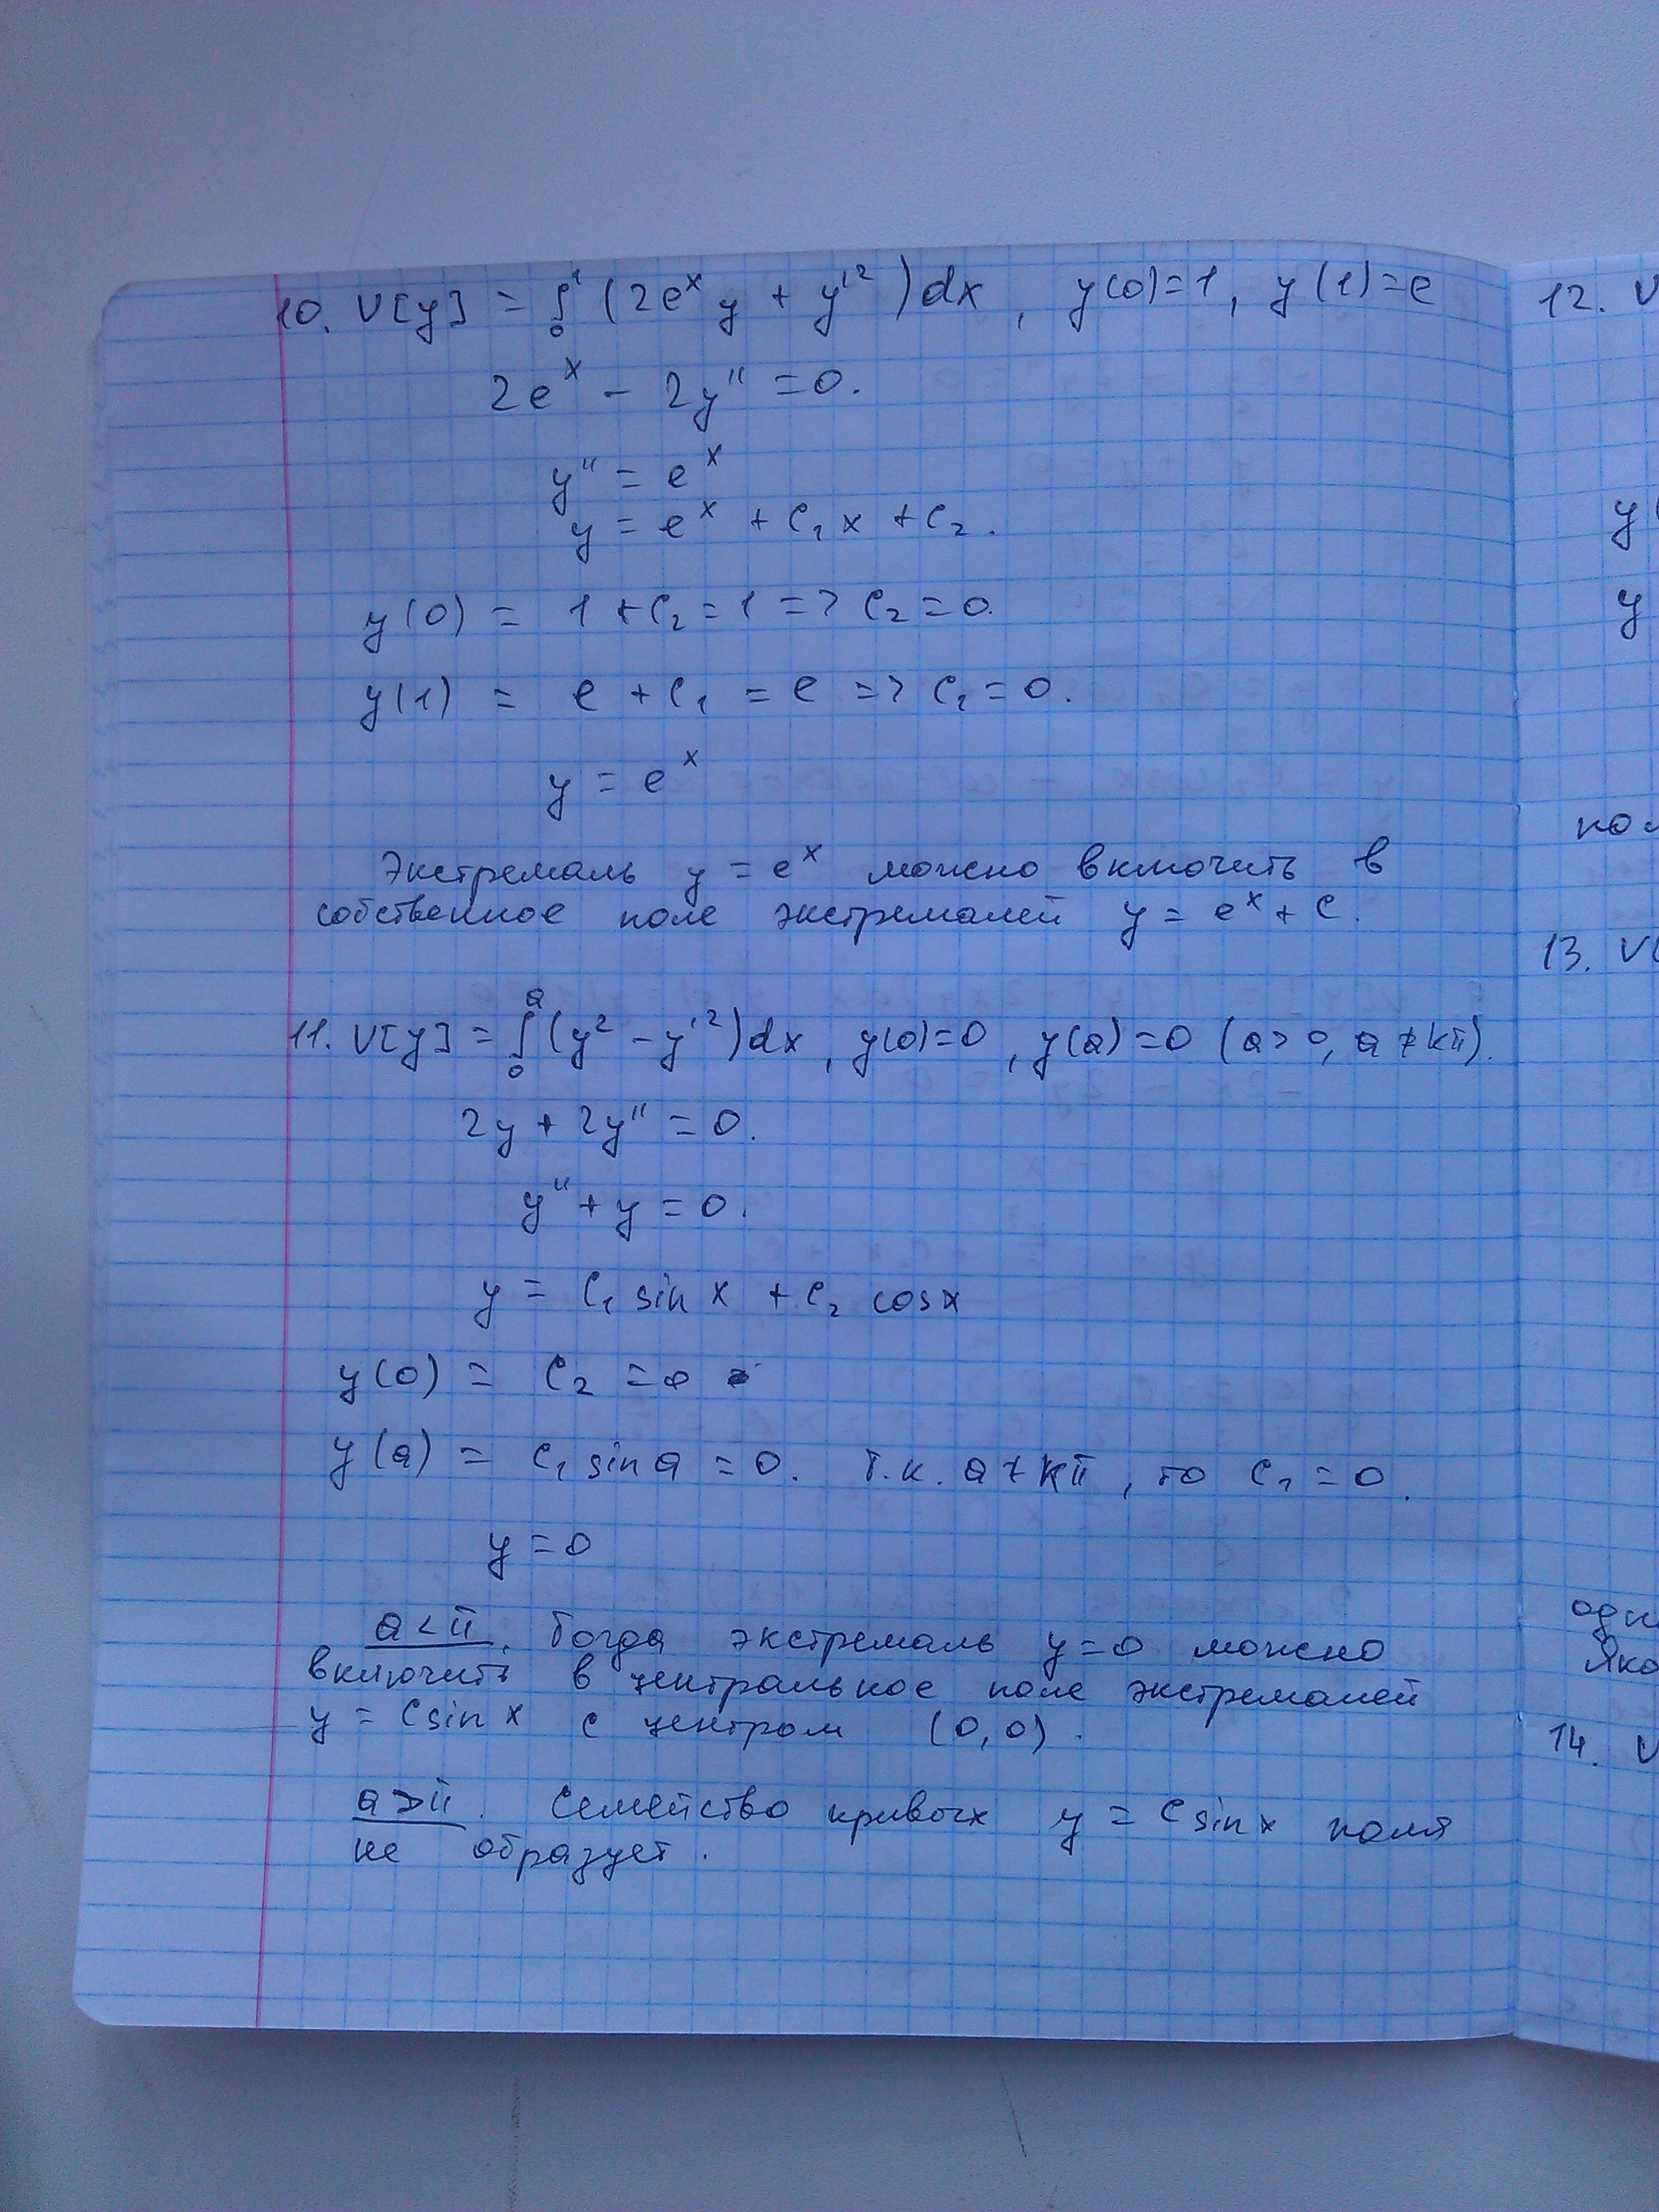 10. V[y] = ∫₀¹ (2eˣy + y'²)dx, y(0)=1, y(1)=e
2eˣ - 2y'' = 0.
y'' = eˣ
y = eˣ + C₁x + C₂.
y(0) = 1 + C₂ = 1 => C₂ = 0.
y(1) = e + C₁ = e => C₁ = 0.
y = eˣ
Экстремаль y = eˣ можно включить в
собственное поле экстремалей y = eˣ + C.
11. V[y] = ∫₀ᵃ (y² - y'²)dx, y(0)=0, y(a)=0 (a>0, a≠kπ).
2y + 2y'' = 0.
y'' + y = 0.
y = C₁ sin x + C₂ cos x
y(0) = C₂ = 0
y(a) = C₁ sin a = 0. Т.к. a ≠ kπ, то C₁ = 0.
y = 0
a < π. Тогда экстремаль y=0 можно
включить в центральное поле экстремалей
y = C sin x с центром (0,0).
a > π. Семейство кривых y = C sin x поля
не образует.
12. V
y(
y
13. V[
14. V